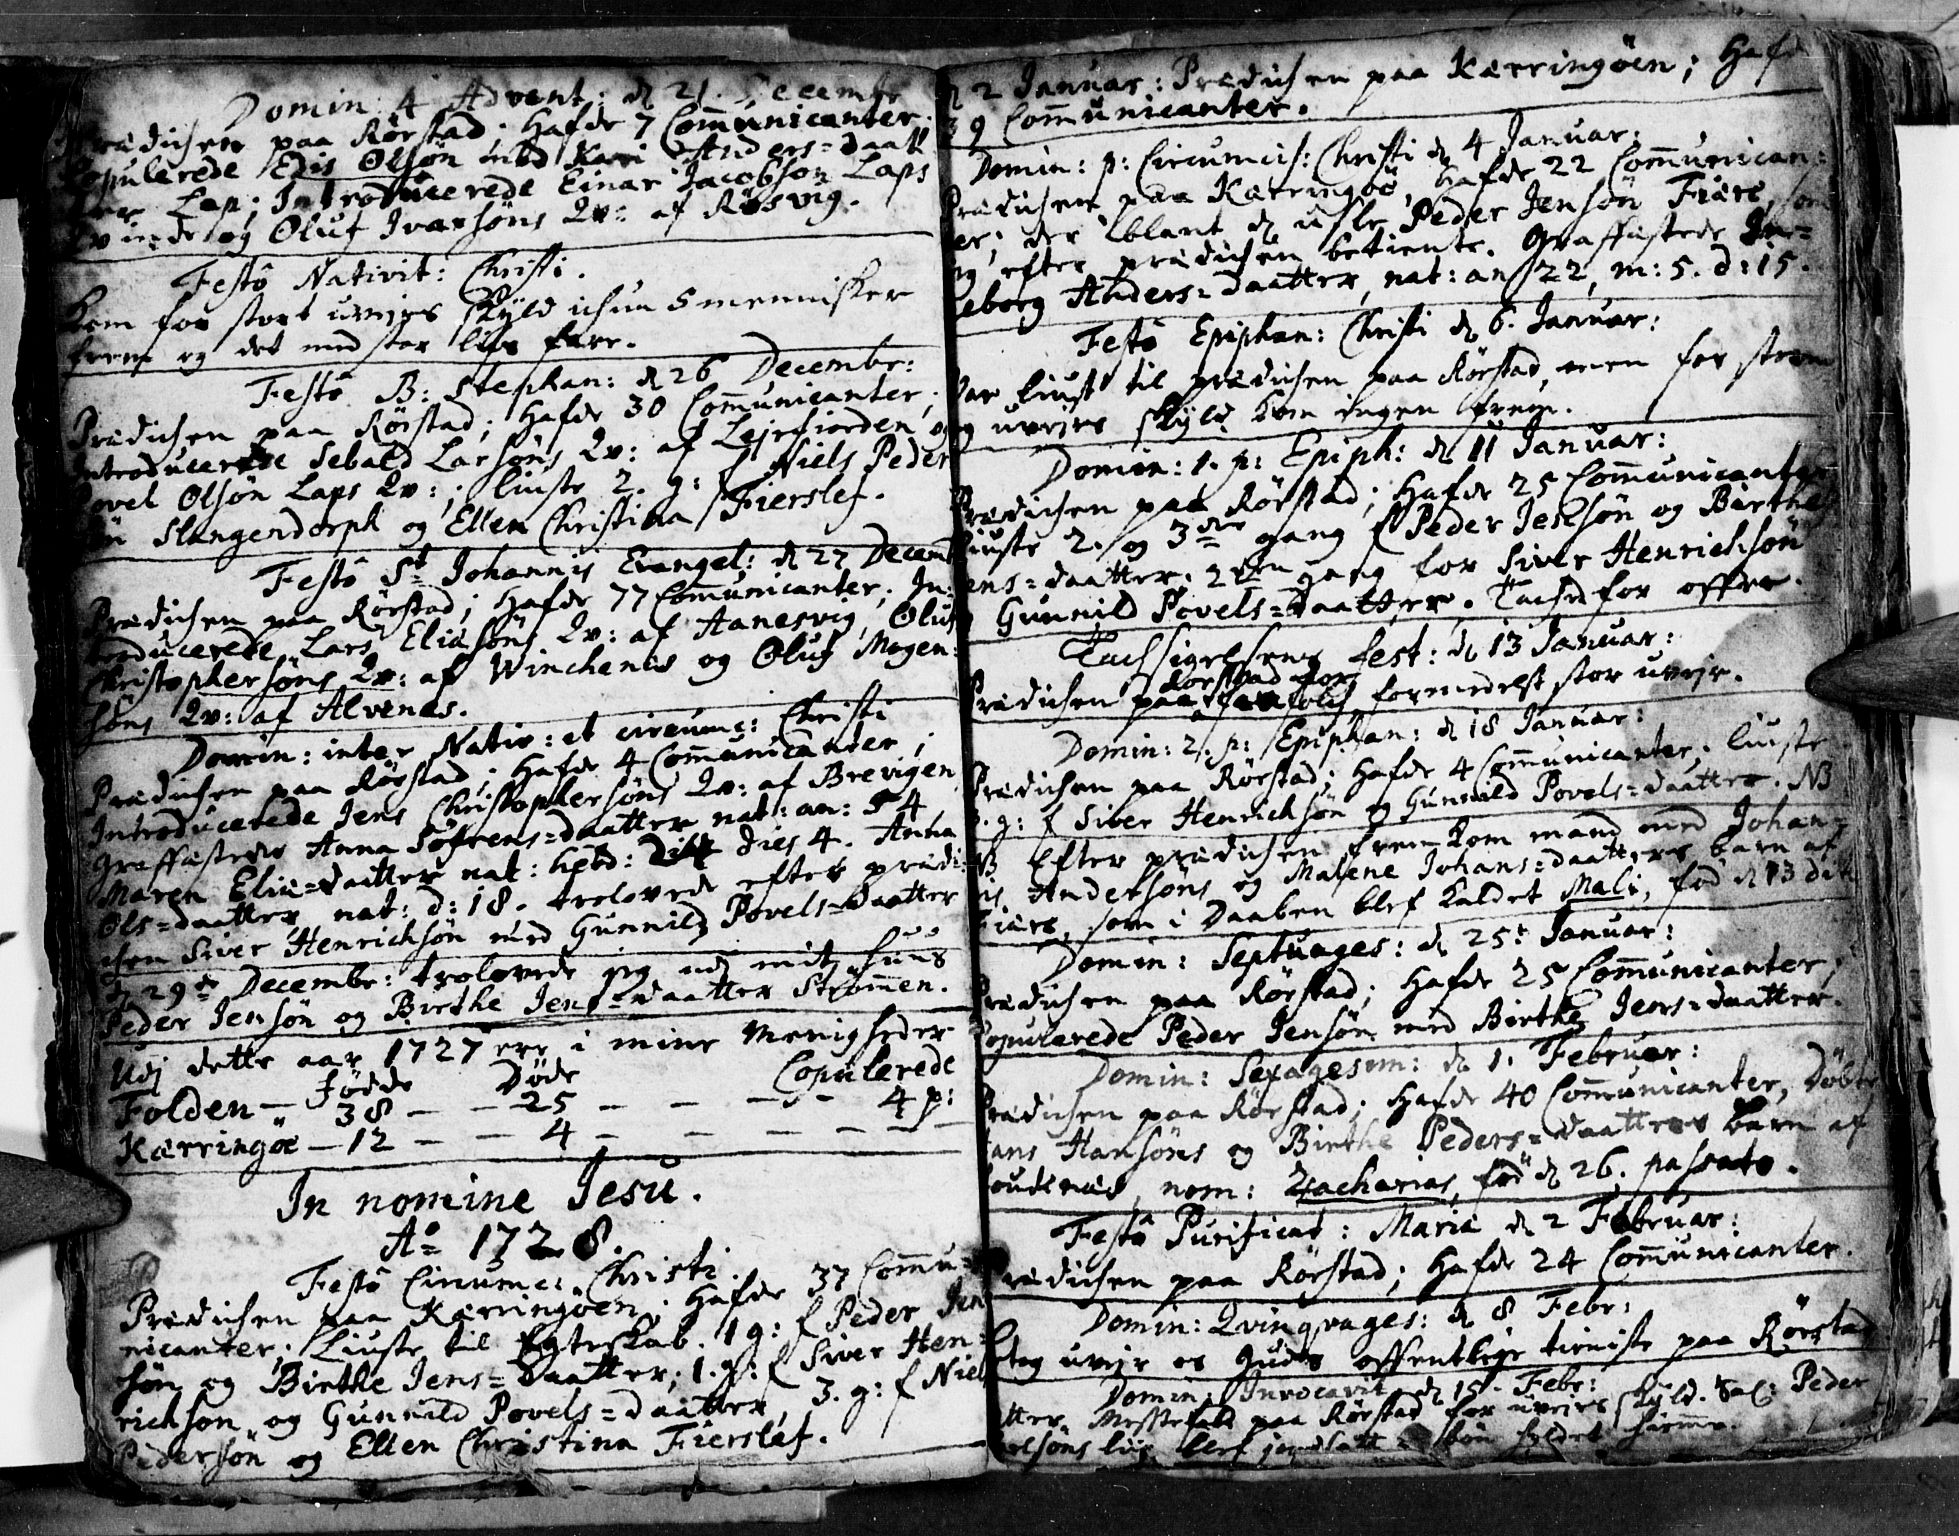 Domin: 4 Advent: d 21. Decembr
Prædichen paa Rörstad. Hafde 7 Communicanter.
Copulerede Edis Olsön med Kari Anders=daatt
Lap; Introducerede Einar Jacobsön Laps
Qvinde og Oluf Ivarsöns Qv: af Rösvig.
Festô Nativit: Christi.
Kom for stort uvejrs skyld ichun 5 mennisker
frem og det med stor lifs fare.
Festô B: Stephan: d 26 Decembr:
Prædichen paa Rörstad; Hafde 30 Communicanter;
Introducerede Sebald Larsöns Qv: af Lejrfiorden og
Povel Olsön Laps Qv:; liuste 2. g: f Niels Peder
sön Slangendorph og Ellen Christina Fierslef.
Festô St Johannis Evangel: d 27 Decemb
Prædichen paa Rörstad; Hafde 77 Communicanter; In:
troducerede Lars Eliasöns Qv: af Aanesvig, Oluf
Christophersöns Qv: af Winchenes og Oluf Mogen:
söns Qv: af Alvenes.
Domin: inter Nativ: et circumc: Christi
Prædichen paa Rörstad; Hafde 4 Communicanter;
Introducerede Jens Christophersöns Qv: af Brevigen
Graffästede Anna Söfrens=daatter nat: an: 54
Maren Elia=daatter nat: hebd: dies 4. Anna
Ols=daatter nat: d: 18. trolovede efter prædi:
chen Siver Henrichsön med Gunnild Povels=daatter
d 29de Decembr: trolovede sig udj mit huus
Peder Jensön og Birthe Jens=daatter Strömmen.
Udj dette aar 1727 ere i mine Menigheder
Födde Döde Copulerede
Folden — 38 — — 25 — — — — 4 p:
Kærringöe — 12 — — 4 — — — — —
In nomine Jesu.
Ao 1728.
Festô Circumc: Christi
Prædichen paa Kærringöen; Hafde 37 Commu=
nicanter; Liuste til Egteskab. 1 g: f Peder Jen
sön og Birthe Jens=daatter; 1. g: f Siver Hen:
richsön og Gunnild Povels=daatter, 3. g: f Niels
Pedersön og Ellen Christina Fierslef.
d 2 Januar: Prædichen paa Kærringöen; Hafde
39 Communicanter.
Domin: p: Circumcis: Christi d 4 Januar:
Prædichen paa Kærringöe, Hafde 22 Communican:
ter; der iblant d usle Peder Jensön Fiære, som
efter prædichen betiente. Graffästede In=
geborg Anders=daatter, nat: an 22, m: 5. d: 15.
Festô Epiphan: Christi d 6. Januar:
Var liust til prædichen paa Rörstad, men for storm
og uvejrs skyld kom ingen frem.
Domin: 1. p: Epiph: d 11 Januar:
Prædichen paa Rörstad; Hafde 25 Communicanter
liuste 2. og 3die gang f Peder Jensön og Birthe
Jens=daatter. 2den gang for Siver Henrichsön
og Gunnild Povels=daatter. Tachede for offer.
Tachsigelsens fest: d 13 Januar:
Prædichen paa Rörstad for faa folch formedelst stor uvejr.
Domin: 2. p: Epiphan: d 18 Januar:
Prædichen paa Rörstad; Hafde 4 Communicanter; liuste
3. g: f Siver Henrichsön og Gunnild Povels=daatter. NB
NB Efter prædichen frem kom mand med Johan=
nis Andersöns og Malene Johans=daatters barn af
Fiære, som i Daaben blef kaldet Mali, föd d 13 dito
Domin: Septuages: d 25t Januar:
Prædichen paa Rörstad; Hafde 25 Communicanter;
Copulerede Peder Jensön med Birthe Jens=daatter.
Domin: Sexagesim: d 1. Februar:
Prædichen paa Rörstad; Hafde 40 Communicanter, Döbte
Hans Hansöns og Birthe Peders=daatters barn af
nom: Zacharias, föd d 26. passato.
Festô Purificat: Mariæ d 2 Februar:
Prædichen paa Rörstad; Hafde 24 Communicanter.
Domin: Qvinqvages: d 8 Febr:
uvejr os Guds offentlige tieniste paa Rörstad
Domin: Invocavit d 15. Febr:
Messefald paa Rörstad for uvejrs skyld. Sal: Peder
liig blef